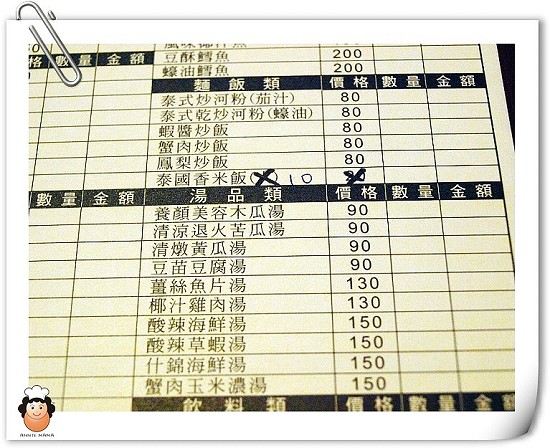 豆酥鱈魚 200
格 數量 金額 蠔油鱈魚 200
麵飯類 價格 數量 金額
泰式炒河粉(茄汁) 80
泰式乾炒河粉(蠔油) 80
蝦醬炒飯 80
蟹肉炒飯 80
鳳梨炒飯 80
泰國香米飯 10
數量 金額 湯品類 價格 數量 金額
養顏美容木瓜湯 90
清涼退火苦瓜湯 90
清燉黃瓜湯 90
豆苗豆腐湯 90
薑絲魚片湯 130
椰汁雞肉湯 130
酸辣海鮮湯 150
酸辣草蝦湯 150
什錦海鮮湯 150
蟹肉玉米濃湯 150
飲料類 價格 數量 金額
ANNIE MAMA